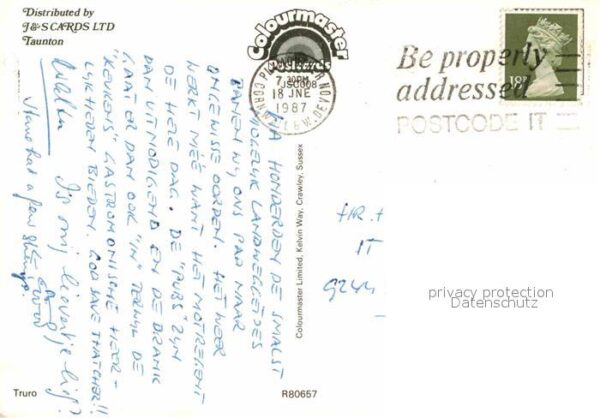 Distributed by
J&S CARDS LTD
Taunton
Colourmaster
Postcards
JSC008
7.30PM
18 JNE
1987
CORNWALL & W. DEVON
Be properly
addressed
POSTCODE IT
18P
VIA HONDERDEN DE SMALST
MOGELIJK LANDWEGGETJES
BANEN WIJ ONS PAD NAAR
ONGEWISSE OORDEN. HET WEER
WERKT MEÉ WANT HET MOTREGENT
DE HELE DAG. DE "PUBS" ZIJN
DAN UITNODIGEND EN DE DRANK
GAAT ER DAN OOK "IN" TERWIJL DE
"KEUKENS" GASTRONOMISCHE HEER-
LIJKHEDEN BIEDEN. GOD SAVE THATCHER!!
Is mijn lieverdje lief?
have had a few
Colourmaster Limited, Kelvin Way, Crawley, Sussex
HR. +
IT
9244
privacy protection
Datenschutz
Truro
R80657